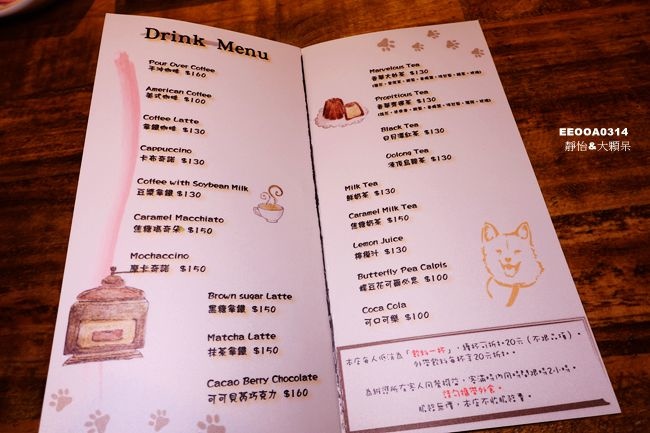 Drink Menu
Pour Over Coffee
手沖咖啡 $160
American Coffee
美式咖啡 $100
Coffee Latte
拿鐵咖啡 $130
Cappuccino
卡布奇諾 $130
Coffee with Soybean Milk
豆漿拿鐵 $130
Caramel Macchiato
焦糖瑪奇朵 $150
Mochaccino
摩卡奇諾 $150
Brown sugar Latte
黑糖拿鐵 $150
Matcha Latte
抹茶拿鐵 $150
Cacao Berry Chocolate
可可貝芮巧克力 $160
Marvelous Tea
$130
Propitious Tea
$130
Black Tea
日月潭紅茶 $130
Oolong Tea
凍頂烏龍茶 $130
Milk Tea
鮮奶茶 $130
Caramel Milk Tea
焦糖奶茶 $150
Lemon Juice
檸檬汁 $130
Butterfly Pea Calpis
蝶豆花可爾必思 $100
Coca Cola
可口可樂 $100
本店每人低消為「飲料一杯」，續杯可折扣20元（不限品項）。
外帶飲料每杯享20元折扣。
為新您所在客人用餐權益，客滿時內用時間限時2小時。
請勿攜帶外食。
服務無價，本店不收服務費。
EEOOA0314
靜怡&大顆呆